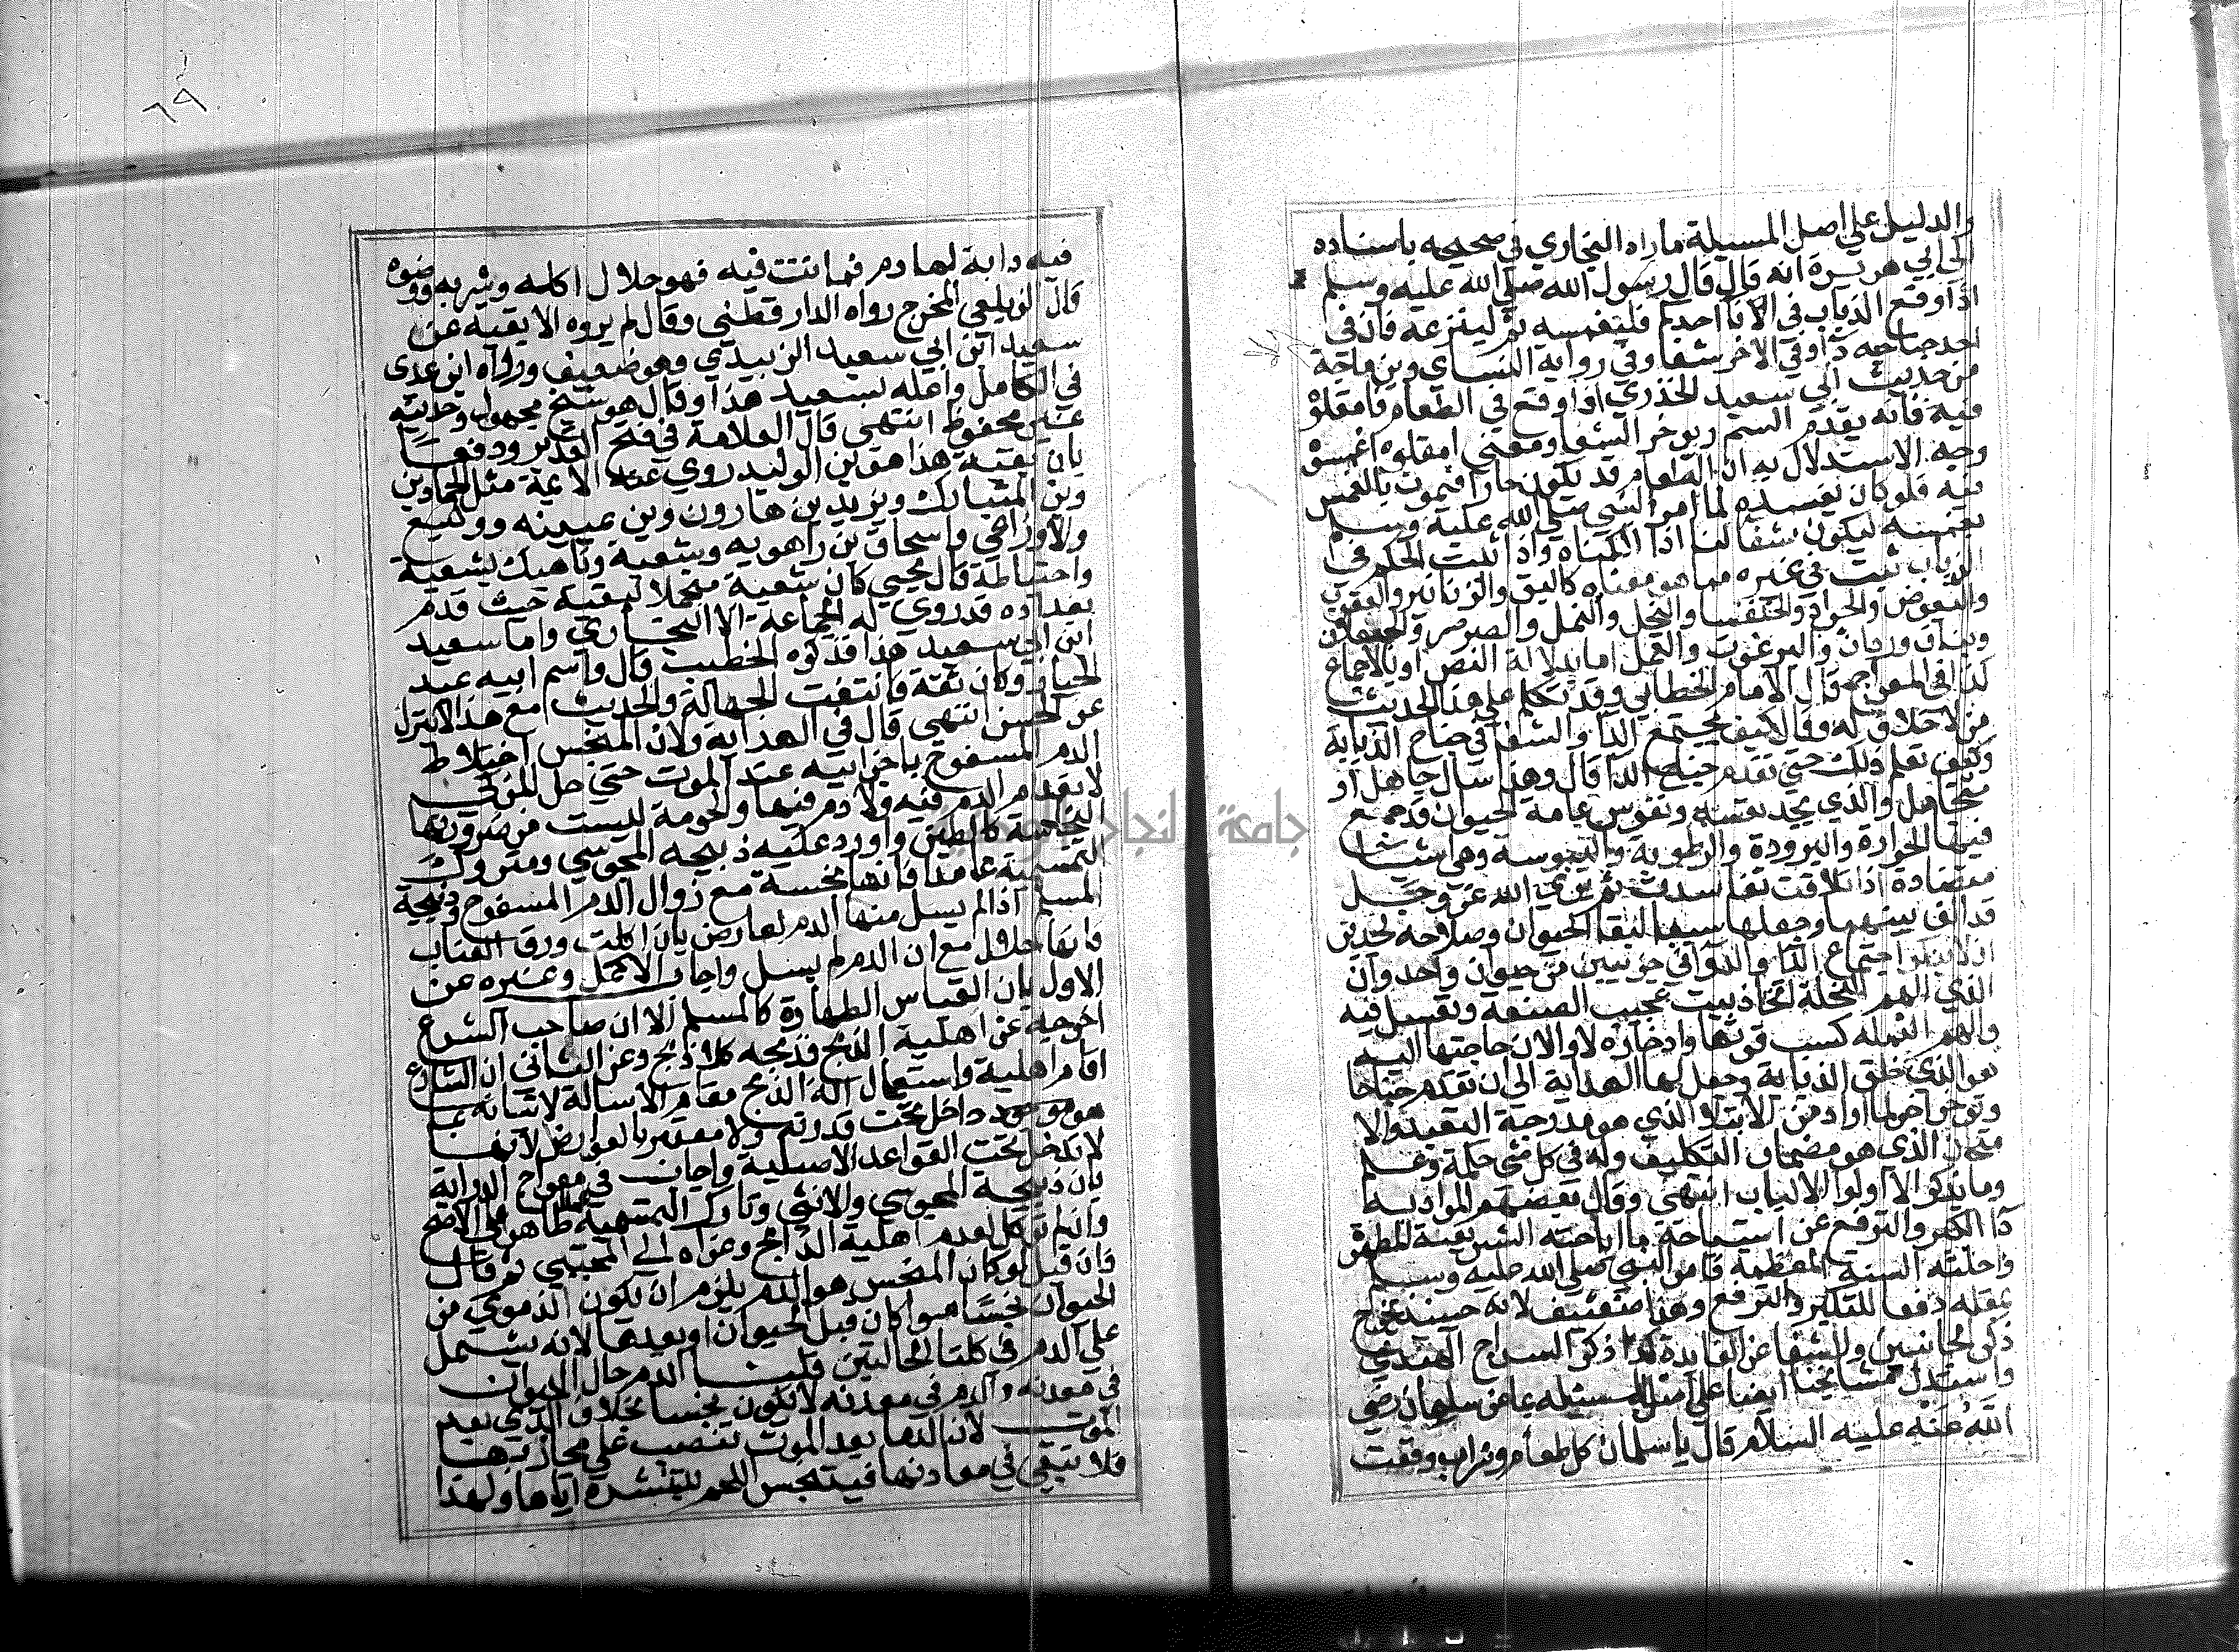 والدليل علي اصل المسيلة ماراه البخاري في صحيحه باسناده
الي ابي هريرة انه قال قال رسول الله صلي الله عليه وسلم
اذا وقع الذباب في الانا احدكم فليغمسه ثم لينزعه فان في
احد جناحه دا وفي الاخر شفا وفي رواية النساي وبن ماجة
من حديث ابي سعيد الخذري اذا وقع في الطعام فامقلوه
فيه فانه يقدم السم ويوخر الشفا ومعني امقلوه اغمسوه
وجه الاستدلال به ان الطعام قد يكون حارا فيموت بالغمس
فيه فلو كان يفسده لما امر النبي صلي الله عليه وسلم
بغمسه ليكون شفا لنا اذا اكلناه واذا ثبت الحكم في
الذباب ثبت في غيره مما هو معناه كالبق والزنانير والعقرب
والبعوض والجراد والخنفسا والنحل والنمل والصرصر والجعلان
وبنات وردان والبرغوت والقمل اما بدلالة النص او بالاجماع
كذا في المعراج قال الامام الخطابي وقد تكلم علي هذا الحديث
من لا خلاق له وقال كيف يجتمع الدا والشفا في جناح الذبابة
وكيف تعلم ذلك حتي تقدم جناح الدا قال وهذا سال جاهل او
متجاهل والذي يجد نفسه ونفوس عامة الحيوان قد جمع
فيها الحرارة والبرودة والرطوبة واليبوسة وهي اشيا
متضاده اذا تلاقت تفاسدت ثم يري الله عز وجل
قد الف بينهما وجعلها سببا لبقا الحيوان وصلاحه لجدير
ان لا ينكر اجتماع الدا والدوا في جزيين من حيوان واحد وان
الذي الهم النحلة اتخاذ بيت عجيب الصنعة وتعسل فيه
والهم النمله كسب قوتها وادخاره لاوالان حاجتها اليه
هو الذي خلق الذبابة وجعل لها الهداية الي ان تقدم جناحا
وتوخر اخر لما اراد من الابتلا الذي هو مدرجة التعبد والا
متحان الذي هو مضمار التكليف وله في كل شي حكمة وعلم
وما يذكر الا اولوا الالباب انتهي وقال بعضهم المراد به
دا الكبر والترفع عن استباحة ما اباحته الشريعة المطهرة
واحلته السنة المعظمة فامر النبي صلي الله عليه وسلم
بمقله دفعا للتكبر والترفع وهذا ضعيف لانه حينيذ يخرج
ذكر الجانبين والشفا عن الفايدة كذا ذكر السراج الهندي
واستدل مشايخنا ايضا علي اصل المسيله بما عن سلمان رضي
الله عنه عليه السلام قال يا سلمان كل طعام وشراب وقعت
٦٩
فيه دابة لها دم فماتت فيه فهو حلال اكله وشربه ووضوه
قال الزيلعي المخرج رواه الدارقطني وقال لم يروه الا بقية عن
سعيد ابن ابي سعيد الزبيدي وهو ضعيف ورواه ابن عدي
في الكامل واعله بسعيد هذا وقال هو شيخ مجهول وحديثه
غير محفوظ انتهي قال العلامة في فتح القدير ودفعا
بان بقية هذا هو بن الوليد روي عنه الايمة مثل الحمادين
وبن المبارك ويزيد بن هارون وبن عيينه ووكيع
والاوزاعي واسحاق بن راهويه وشعبة وناهيك بشعبة
واحتياطه قال يحيي كان شعبة مبجلا لبقية حيث قدم
بغداده قد روي له الجماعة الا البخاري واما سعيد
ابن ابي سعيد هذا فذكره الخطيب قال واسم ابيه عبد
الجبار وكان ثقة فانتفت الجهالة والحديث مع هذا لا ينزل
عن الحسن انتهي قال في الهداية ولان المنجس اختلاط
الدم المسفوح باجزايه عند الموت حتي حل المزكي
لا يعدم الدم فيه ولا دم فيها والحرمة لليست من ضرورتها
النجاسة كالطين واورد عليه ذبيحه المجوسي ومتروك
التسمية عامدا فانها نجسة مع زوال الدم المسفوح وذبيحة
المسلم اذا لم يسل منها الدم لعارض بان اكلت ورق العناب
فانها حلال مع ان الدم لم يسل واجاب الاكمل وغيره عن
الاول بان القياس الطهارة كالمسلم الا ان صاحب الشرع
اخرجه عن اهلية الذبح فذبحه كلا ذبح وعن الثاني ان الشارع
اقام اهلية واستعمال الة الذبح مقام الاسالة لاتيانه بما
هو موجود داخل تحت قدرته ولا معتبر بالعوارض لانها
لا تدخل تحت القواعد الاصلية واجاب في معراج الدراية
بان ذبيحة المجوسي والانثي وتارك التسمية طاهر في الاصح
وانلم توكل لعدم اهلية الذابح وعزاه الي المجتبي ثم قال
فان قيل لو كان المنجس هو الدم يلزم ان يكون الدموي من
الحيوان نجسا سوا كان قبل الحيوان او بعدها لانه يشتمل
علي الدم في كلتا الحالتين قلنا الدم حال الحيوان
في معدنه والدم في معدنه لا يكون نجسا بخلاف الذي بعد
الموت لان الدما بعد الموت تنصب علي مجاريها
فلا تبقي في معادنها فيتنجس اللحم لتشربه اياها ولهذا